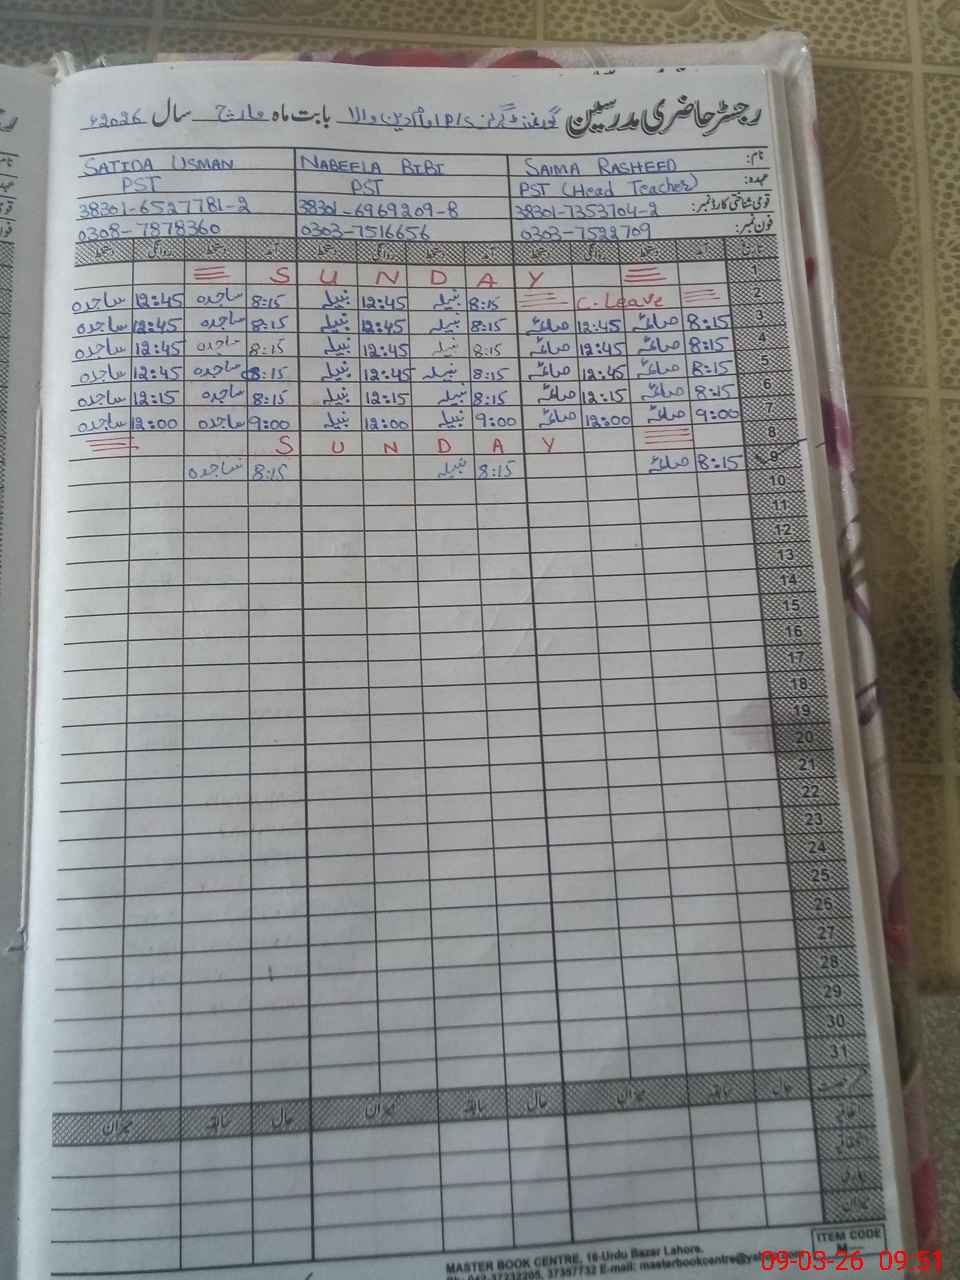 رجسٹر حاضری مدرسین گورنمنٹ گرلز P/S امام دین والا بابت ماہ مارچ سال 2026ء
نام: SAIMA RASHEED NABEELA BIBI SAJIDA USMAN
عہدہ: PST (Head Teacher) PST PST
قومی شناختی کارڈ نمبر: 38301-7353704-2 38301-6969209-8 38301-6527781-2
فون نمبر: 0303-7522709 0303-7516656 0308-7878360
تاریخ آمد دستخط روانگی دستخط آمد دستخط روانگی دستخط آمد دستخط روانگی دستخط
1 SUNDAY
2 C-Leave 8:15 نبیلہ 12:45 نبیلہ 8:15 ساجدہ 12:45 ساجدہ
3 8:15 صائمہ 12:45 صائمہ 8:15 نبیلہ 12:45 نبیلہ 8:15 ساجدہ 12:45 ساجدہ
4 8:15 صائمہ 12:45 صائمہ 8:15 نبیلہ 12:45 نبیلہ 8:15 ساجدہ 12:45 ساجدہ
5 8:15 صائمہ 12:45 صائمہ 8:15 نبیلہ 12:45 نبیلہ 8:15 ساجدہ 12:45 ساجدہ
6 8:15 صائمہ 12:15 صائمہ 8:15 نبیلہ 12:15 نبیلہ 8:15 ساجدہ 12:15 ساجدہ
7 9:00 صائمہ 12:00 صائمہ 9:00 نبیلہ 12:00 نبیلہ 9:00 ساجدہ 12:00 ساجدہ
8 SUNDAY
9 8:15 صائمہ 8:15 نبیلہ 8:15 ساجدہ
10
11
12
13
14
15
16
17
18
19
20
21
22
23
24
25
26
27
28
29
30
31
قسم رخصت حال سابقہ میزان حال سابقہ میزان حال سابقہ میزان
اتفاقی
استحقاقی
بیماری
میزان
ITEM CODE
MASTER BOOK CENTRE, 16-Urdu Bazar Lahore.
Ph: 042-37232205, 37357732 E-mail: masterbookcentre@yahoo.com
09-03-26 09:51